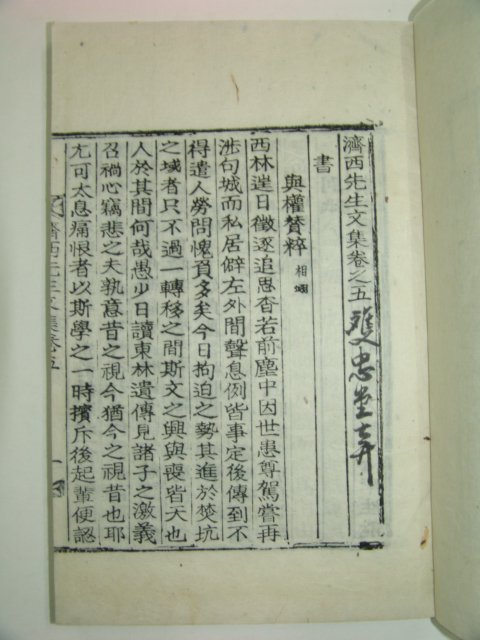 濟西先生文集卷之五 雙忠堂弆
書
與權贊粹 相
西林違日徵逐追思杳若前塵中因世患尊駕嘗再
涉句城而私居僻左外間聲息例皆事定後傳到不
得遣人勞問愧負多矣今日拘迫之勢其進於焚坑
之域者只不過一轉移之間斯文之興與喪皆天也
人於其間何哉愚少日讀東林遺傳見諸子之激義
召禍心竊悲之夫孰意昔之視今猶今之視昔也耶
尤可太息痛恨者以斯學之一時擯斥後起輩便認
濟西先生文集卷五 一